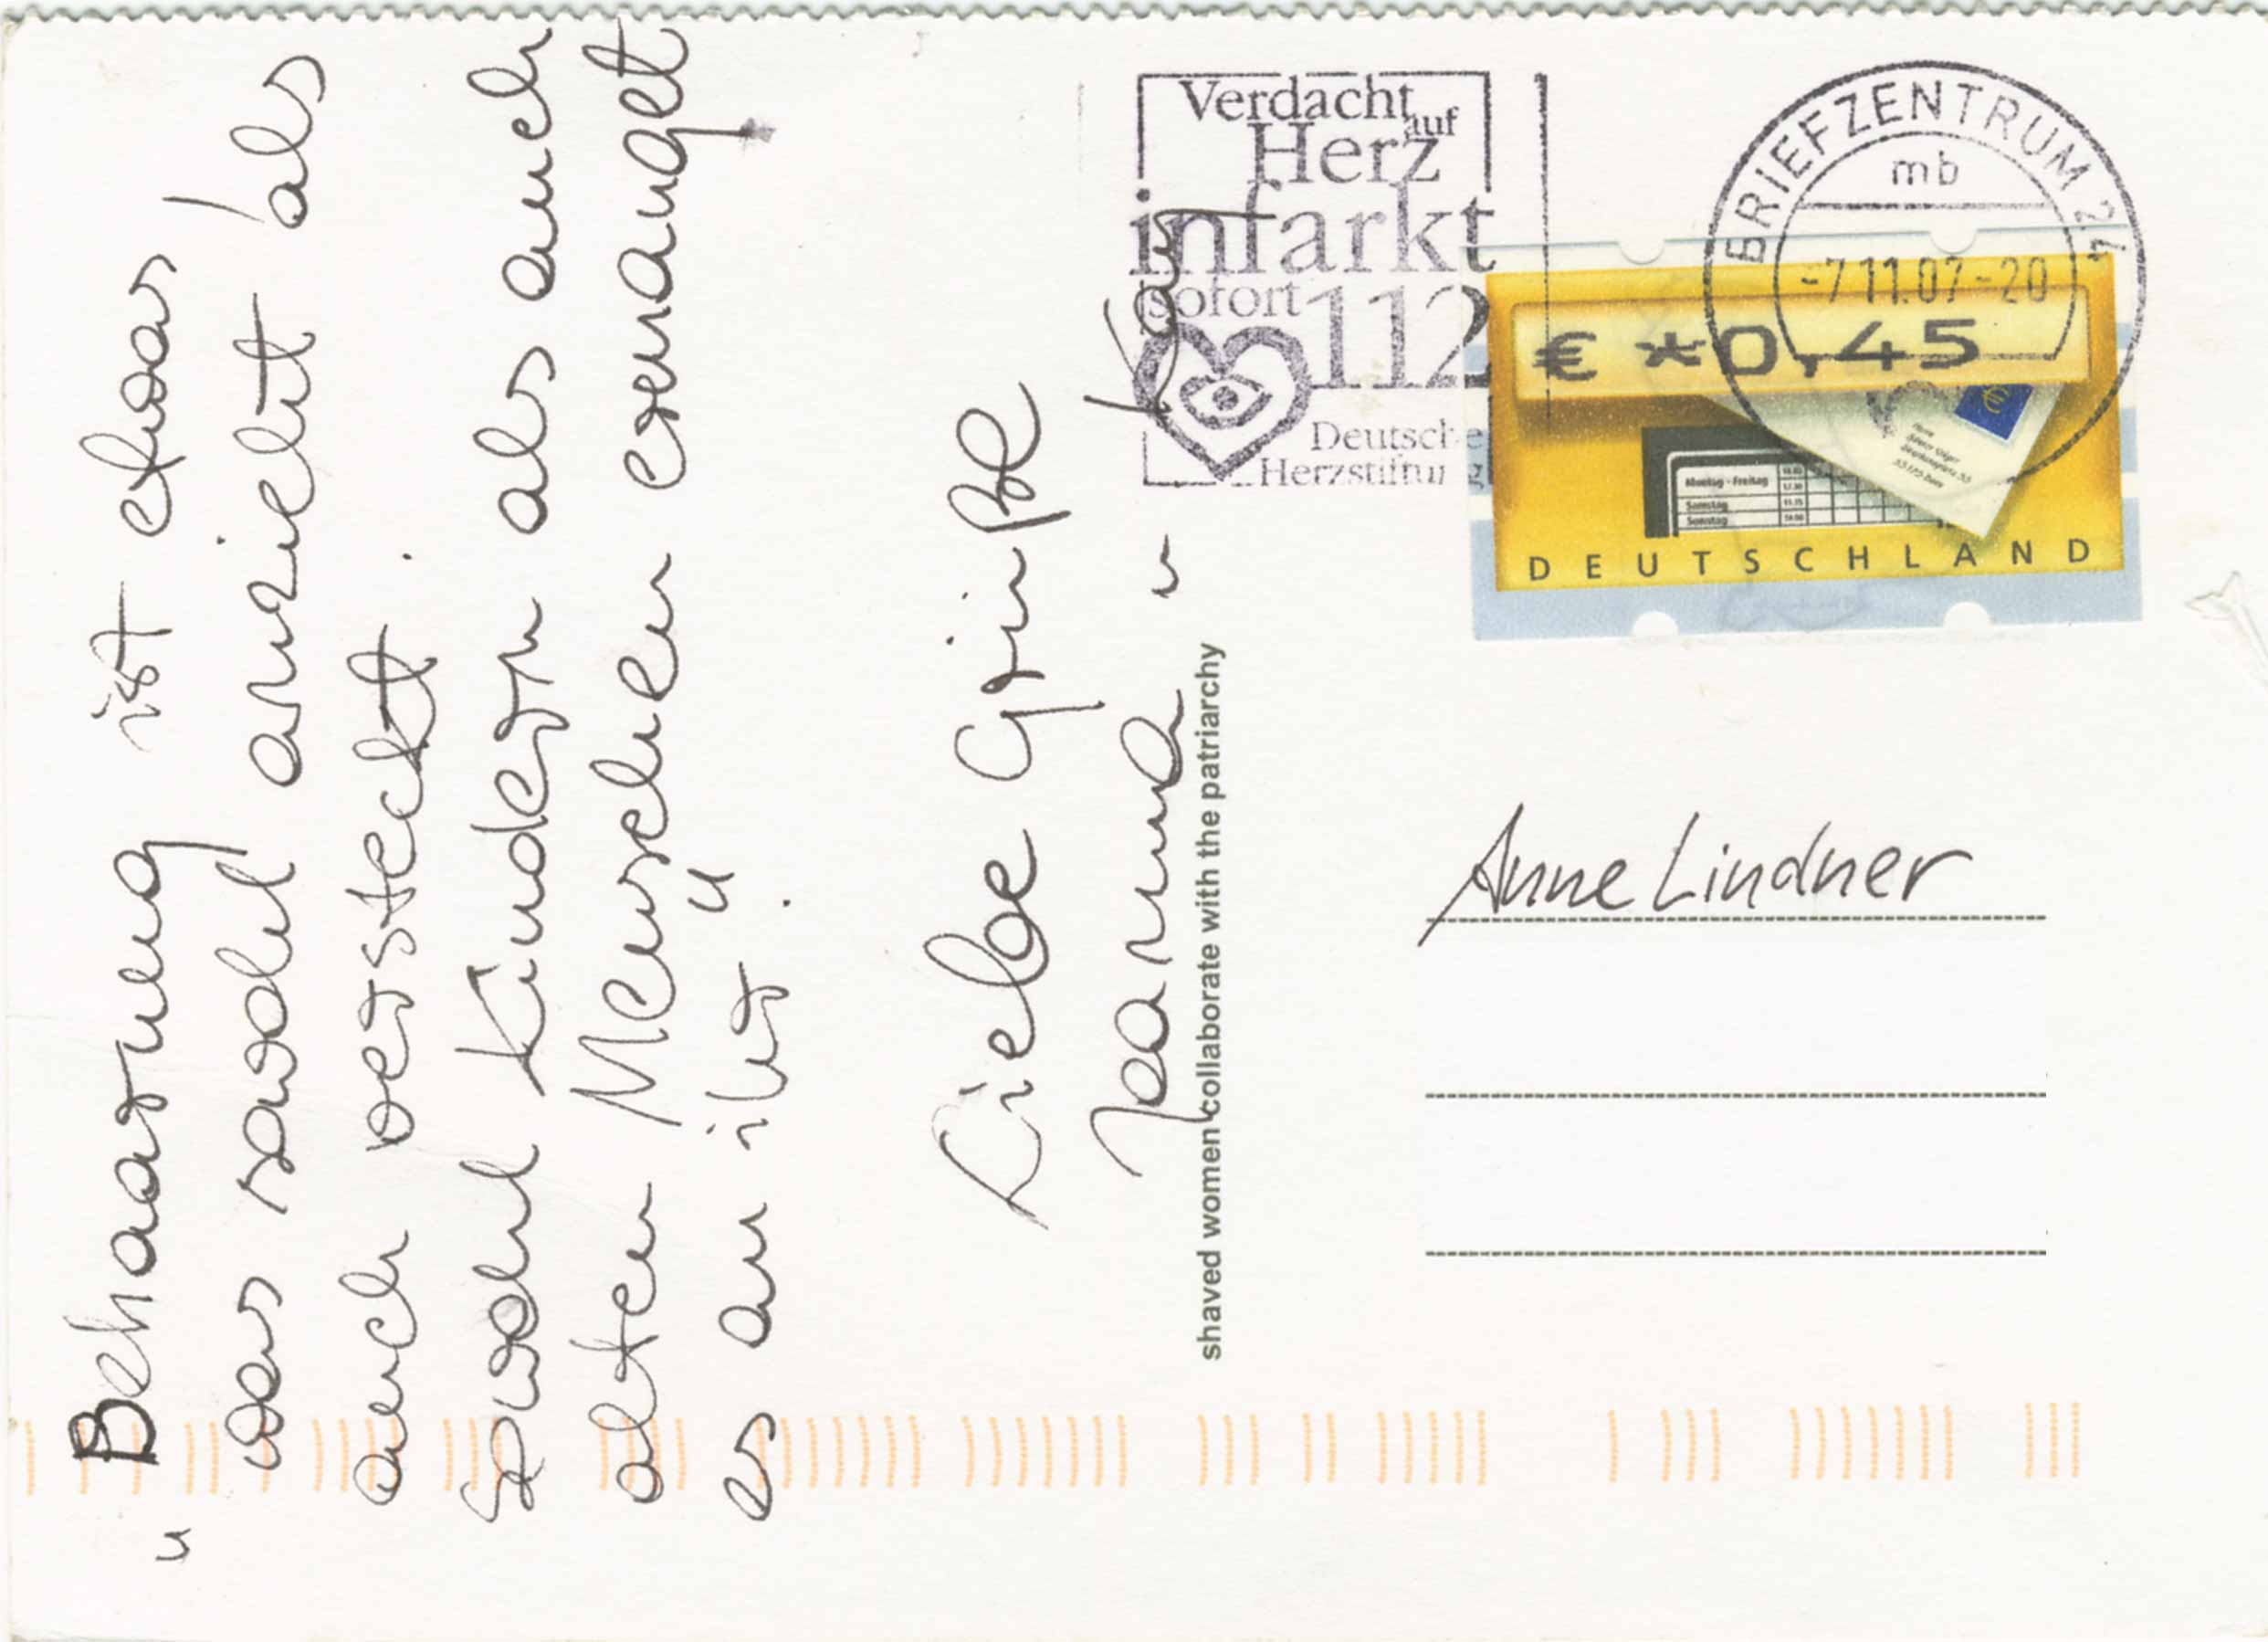 „Behaarung ist etwas /
was sowohl anzieht als
auch versteckt.
Sowohl Kindern als auch
alten Menschen ermangelt
es an ihr."
Liebe Grüße
u Kay
shaved women collaborate with the patriarchy
Verdacht auf
Herz
infarkt
sofort 112
Deutsche
Herzstiftung
BRIEFZENTRUM 24
mb
-7.11.07-20
€ *0,45
Montag - Freitag
Samstag
Sonntag
DEUTSCHLAND
Anne Lindner